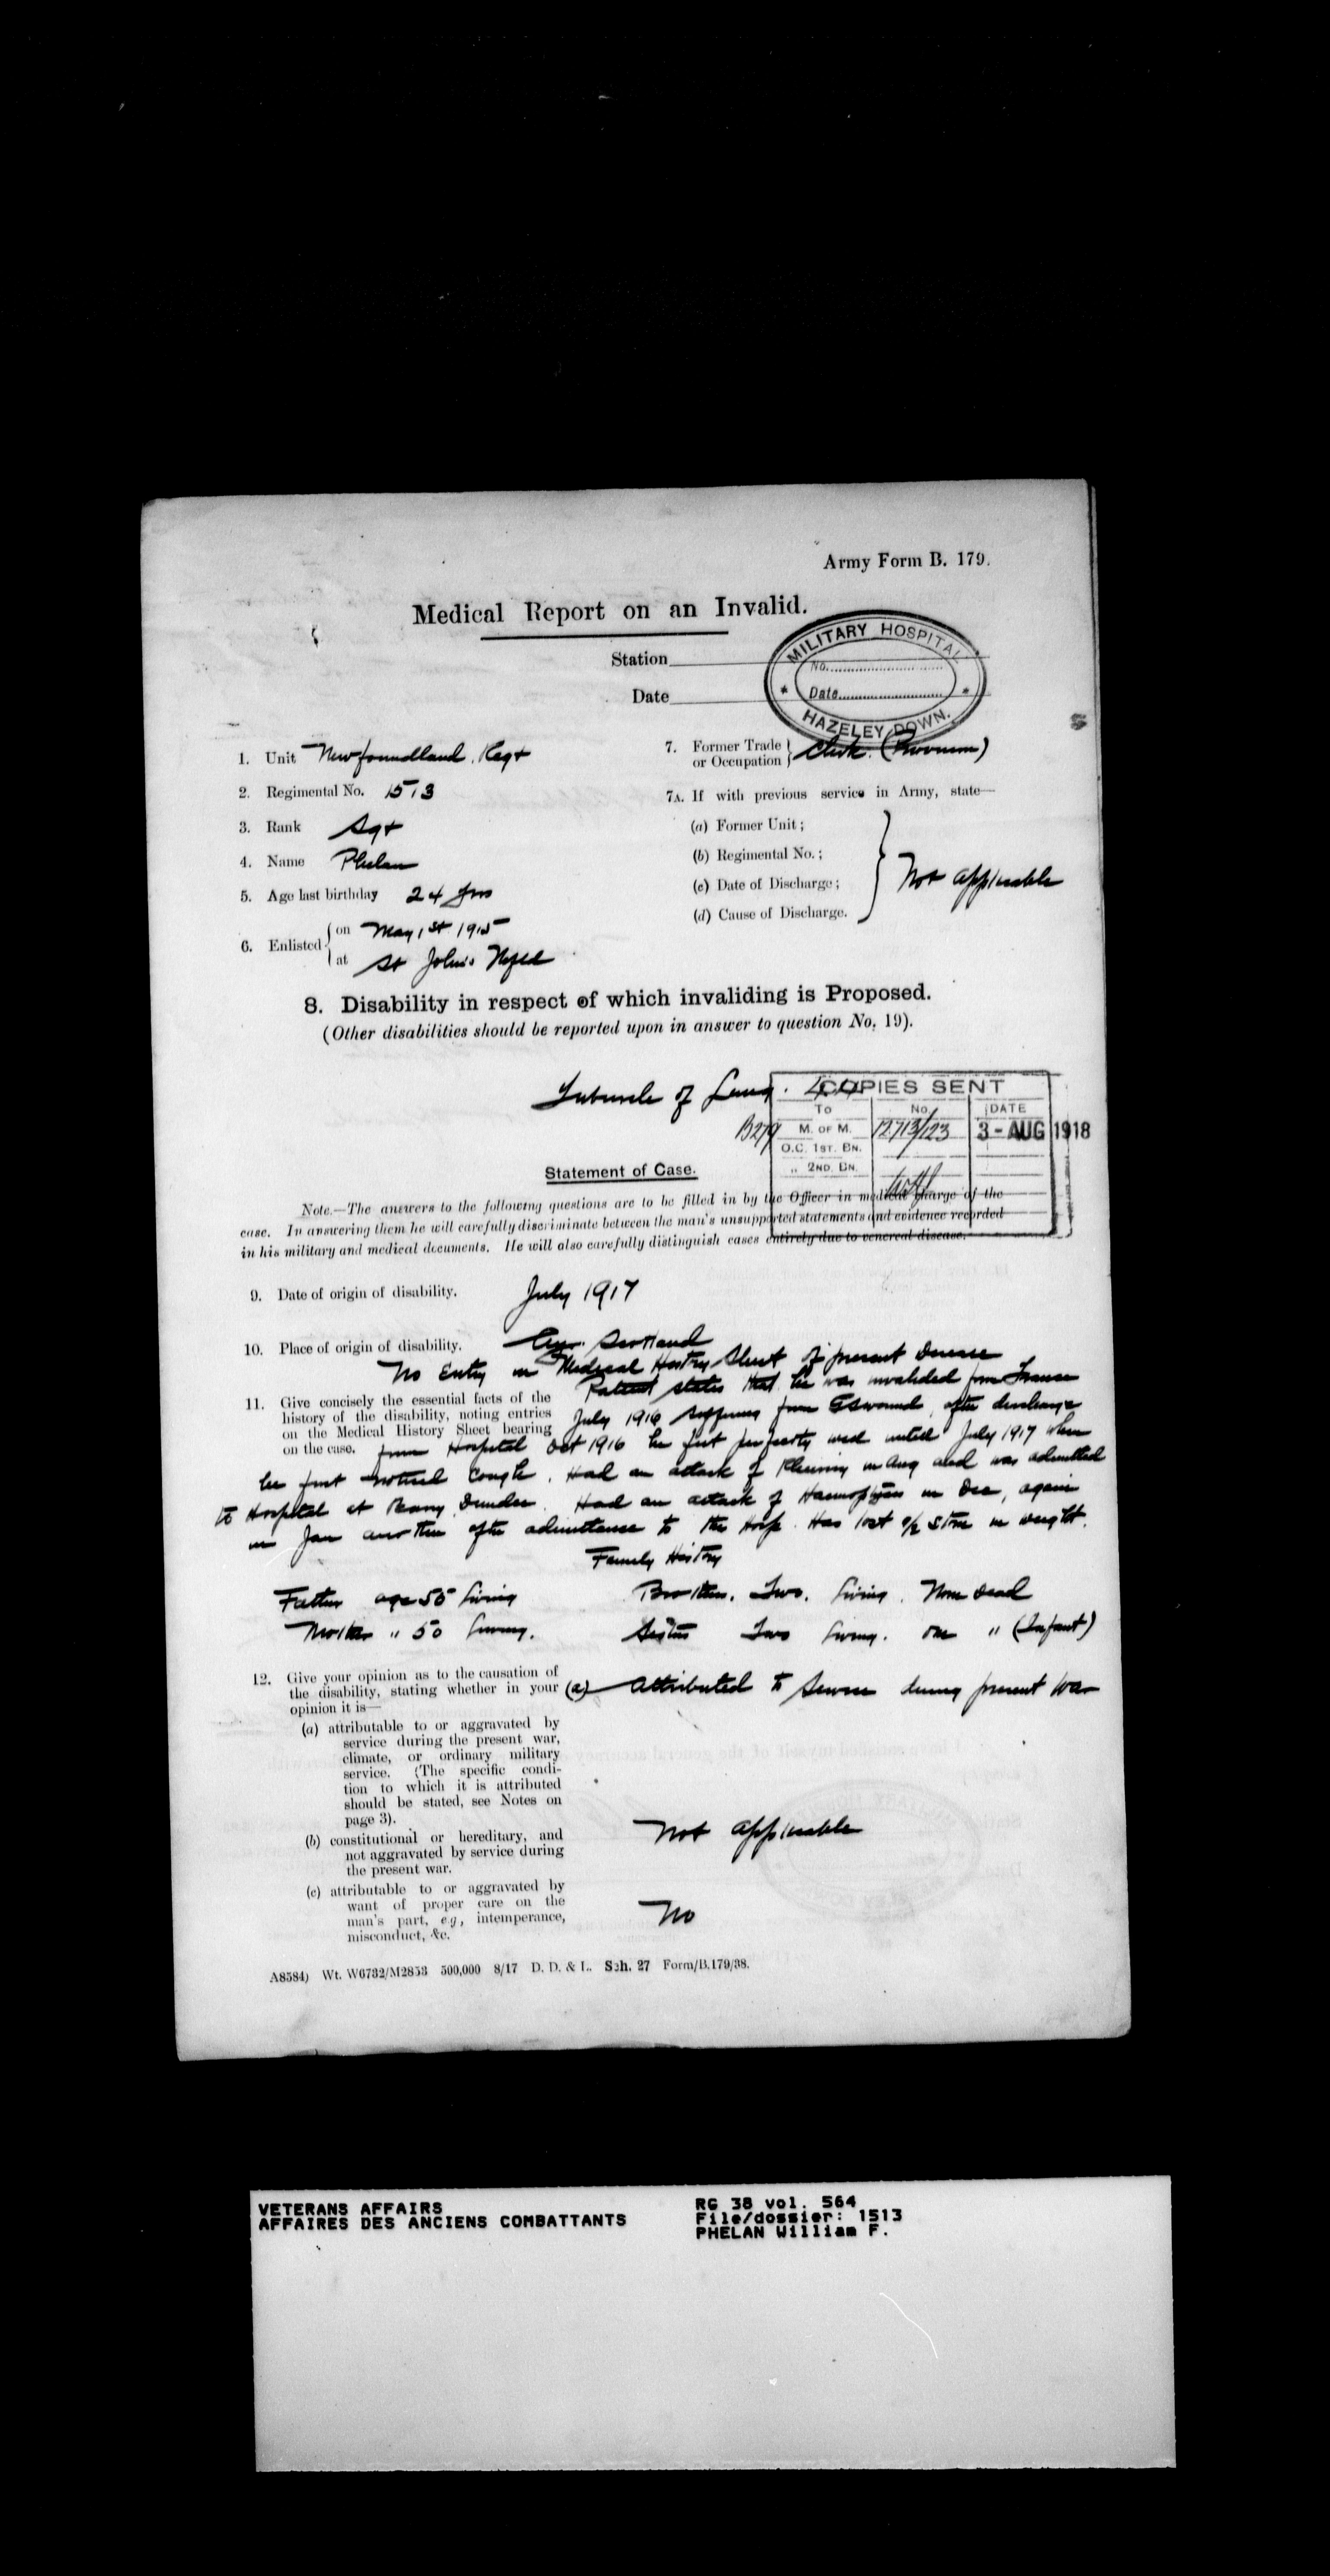 Army Form B. 179.
Medical Report on an Invalid.
Station
Date
MILITARY HOSPITAL
No.
Date
HAZELEY DOWN.
1. Unit Newfoundland Regt
2. Regimental No. 1513
3. Rank Sgt
4. Name Phelan
5. Age last birthday 24 yrs
6. Enlisted { on May 1st 1915
at St John's Nfld
7. Former Trade or Occupation } Clerk. (Provision)
7A. If with previous service in Army, state—
(a) Former Unit;
(b) Regimental No.;
(c) Date of Discharge;
(d) Cause of Discharge.
Not applicable
8. Disability in respect of which invaliding is Proposed.
(Other disabilities should be reported upon in answer to question No. 19).
Tubercle of Lung.
B279
COPIES SENT
To No. DATE
M. OF M. 12713/123 3 - AUG 1918
O.C. 1ST. BN.
„ 2ND. BN.
Statement of Case.
Note.—The answers to the following questions are to be filled in by the Officer in medical charge of the
case. In answering them he will carefully discriminate between the man's unsupported statements and evidence recorded
in his military and medical documents. He will also carefully distinguish cases entirely due to venereal disease.
9. Date of origin of disability. July 1917
10. Place of origin of disability. Ayr. Scotland
No Entry in Medical History Sheet of present Disease
11. Give concisely the essential facts of the
history of the disability, noting entries
on the Medical History Sheet bearing
on the case.
Patient states that he was invalided from France
July 1916 suffering from GSwound, after discharge
from Hospital Oct 1916 he felt perfectly well until July 1917 when
he first noticed cough. Had an attack of Pleurisy in Aug and was admitted
to Hospital at Dundee. Had an attack of Haemoptysis in Dec, again
in Jan another after admittance to the Hosp. Has lost 1/2 stone in weight.
Family History
Father age 55 living Brothers. Two. living. None dead
Mother „ 50 living. Sisters Two living. one „ (Infant)
12. Give your opinion as to the causation of
the disability, stating whether in your
opinion it is—
(a) attributable to or aggravated by
service during the present war,
climate, or ordinary military
service. (The specific condi-
tion to which it is attributed
should be stated, see Notes on
page 3).
(a) Attributed to Service during present War
(b) constitutional or hereditary, and
not aggravated by service during
the present war.
Not applicable
(c) attributable to or aggravated by
want of proper care on the
man's part, e.g., intemperance,
misconduct, &c.
No
A8584) Wt. W6732/M2853 500,000 8/17 D. D. & L. Sch. 27 Form/B.179/38.
VETERANS AFFAIRS
AFFAIRES DES ANCIENS COMBATTANTS
RG 38 vol. 564
File/dossier: 1513
PHELAN William F.